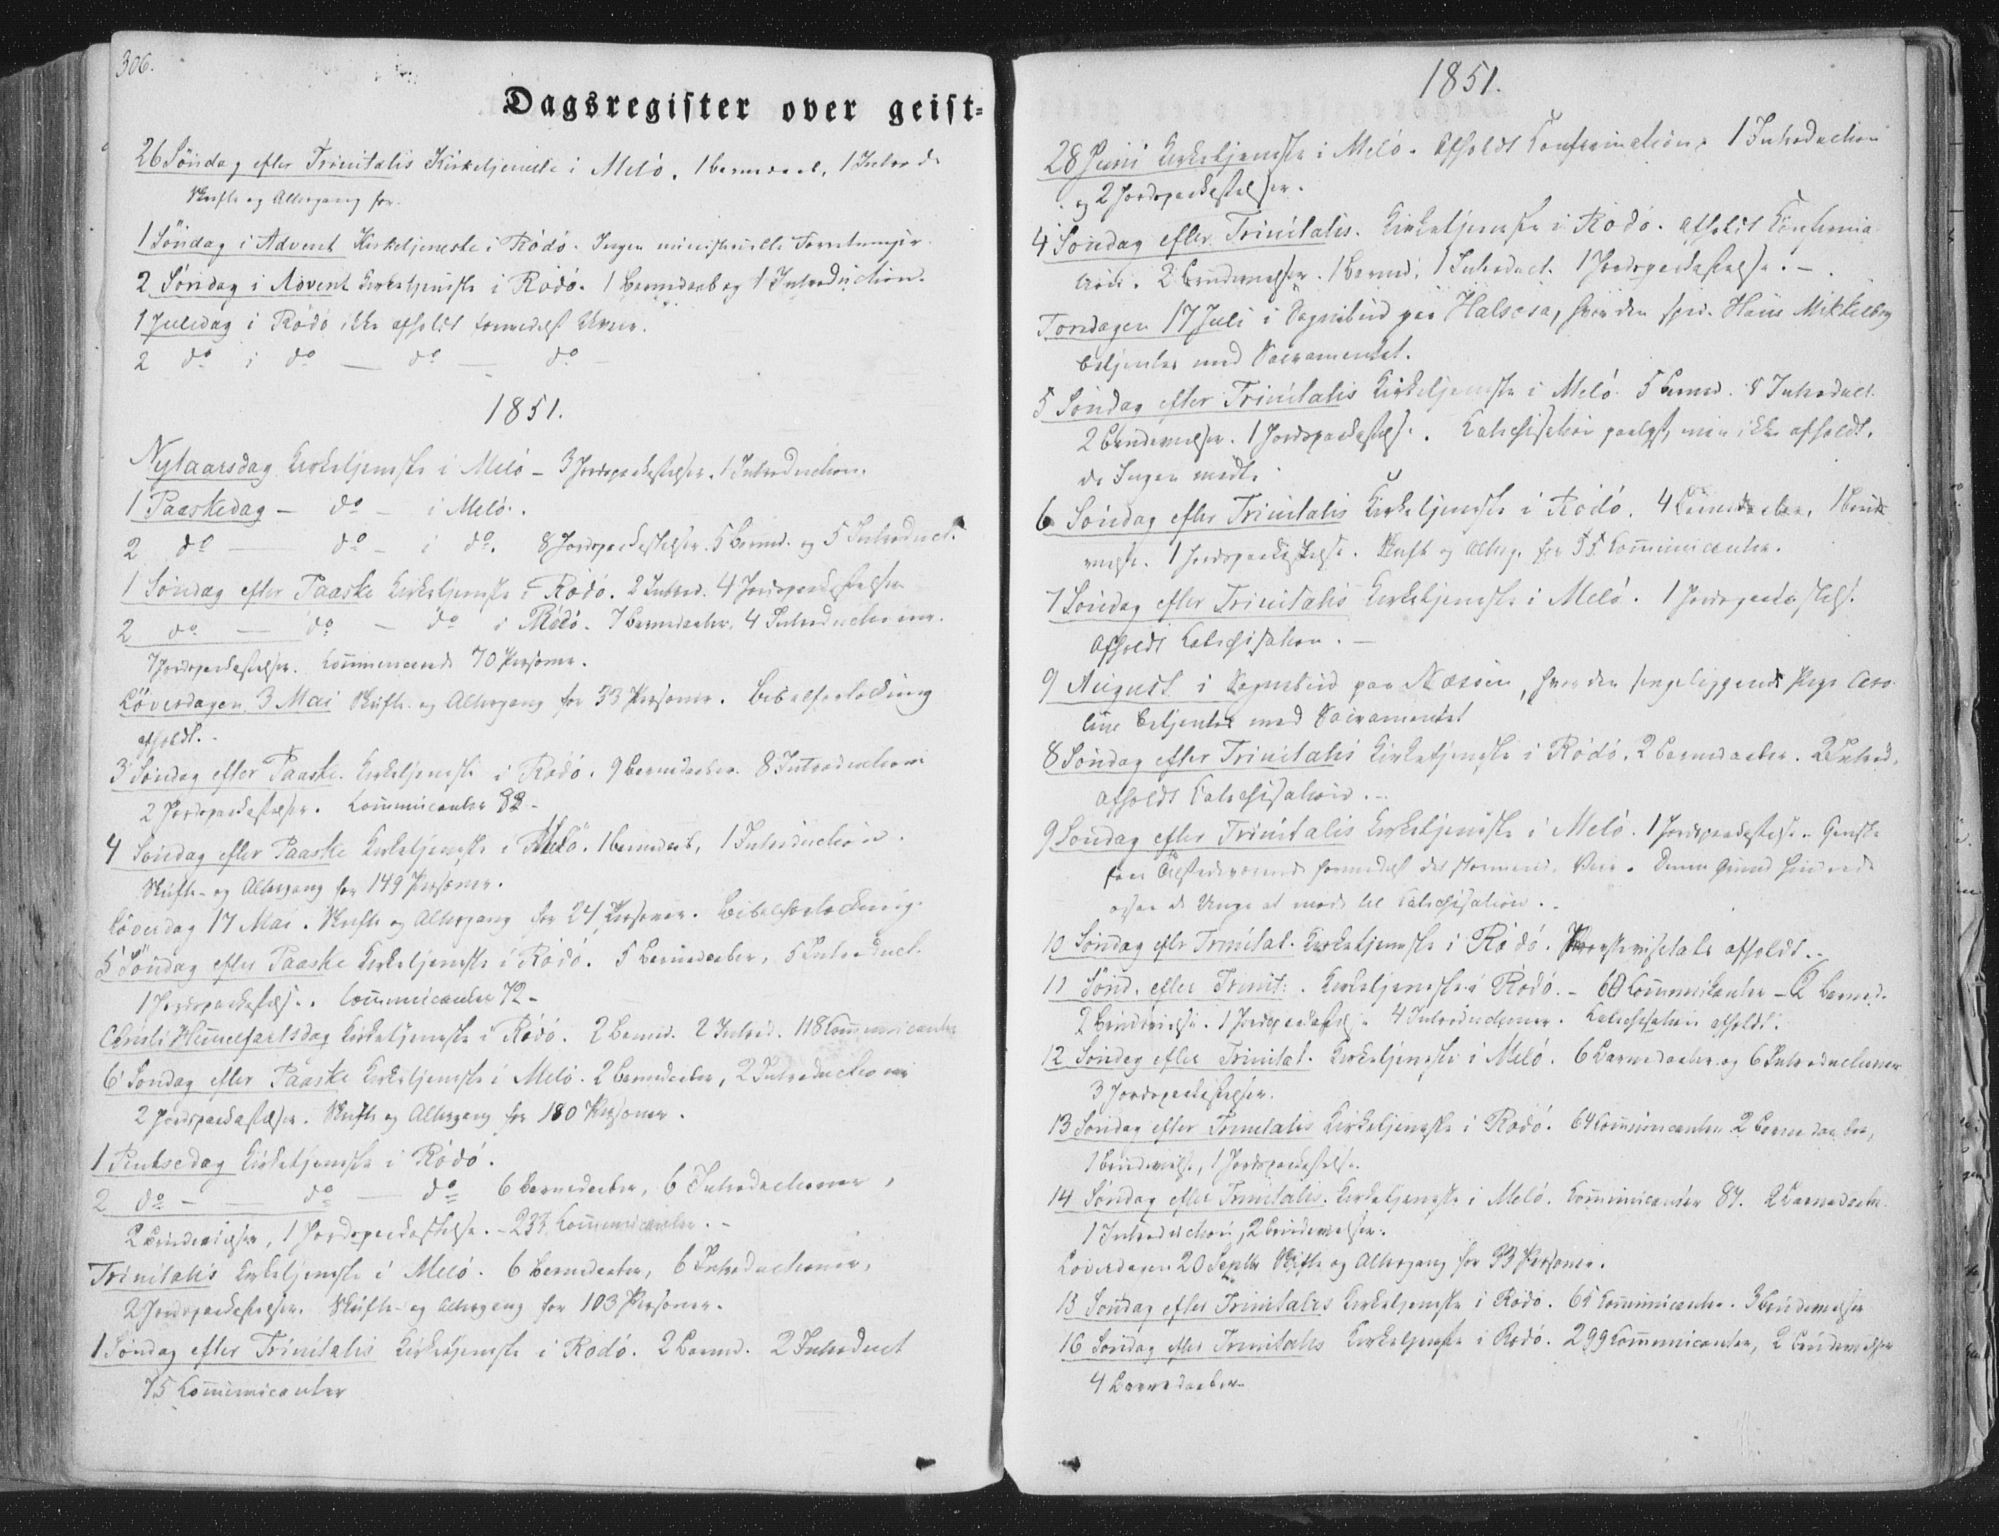 306.
Dagsregister over geist-
26 Søndag efter Trinitatis Kirketjeneste i Melö. 1 barnedaab, 1 Introd.
Skrifte og Altergang for
1 Söndag i Advent Kirketjeneste i Rödö. Ingen ministerielle Forretninger.
2 Söndag i Advent Kirketjeneste i Rödö. 1 Barnedaab og 1 Introduction.
1 Juledag i Rödö ikke afholdt formedelst Uveir.
2 do i do — do — do
1851.
Nytaarsdag Kirketjeneste i Melö – 3 Jordspaakastelser. 1 Introduction.
1 Paaskedag – do – i Melö.
2 do — do – i do. 8 Jordspaakastelser. 5 Barned. og 5 Introduct.
1 Søndag efter Paaske Kirketjeneste i Rödö. 2 Introd. 4 Jordspaakastelser
2 do — do – do i Rödö. 7 barnedaaber. 4 Introductioner.
7 Jordspaakastelser. Communicerede 70 Personer.
Löverdagen 3 Mai Skrifte- og Altergang for 33 Personer. Bibelforklaring
afholdt.
3 Söndag efter Paaske. Kirketjeneste i Rödö. 9 barnedaaber. 8 Introductioner
2 Jordspaakastelser. Communicanter 92 -
4 Söndag efter Paaske Kirketjeneste i Melö. 1 barnedaab, 1 Introduction.
Skrifte- og Altergang for 149 Personer.
Löverdag 17 Mai. Skrifte og Altergang for 24 Personer. Bibelforklaring.
5 Söndag efter Paaske Kirketjeneste i Rödö. 5 Barnedaaber, 5 Introduct.
1 Jordspaakastelse. Communicanter 72 -
Christi Himmelfartsdag Kirketjeneste i Rödö. 2 Barned. 2 Introd. 118 Communicanter
6 Söndag efter Paaske Kirketjeneste i Melö. 2 barnedaaber, 2 Introductioner
2 Jordspaakastelser. Skrifte og Altergang for 180 Personer.
1 Pintsedag Kirketjeneste i Rödö.
2 do - — do — do 6 Barnedaaber, 6 Introductioner,
2 Brudevielser, 1 Jordspaakastelse. – 237 Communicanter. –
Trinitatis Kirketjeneste i Melö. 6 barnedaaber, 6 Introductioner,
2 Jordspaakastelser. Skrifte- og Altergang for 103 Personer.
1 Söndag efter Trinitatis Kirketjeneste i Rödö. 2 Barned. 2 Introduct
75 Communicanter
1851.
28 Juni Kirketjeneste i Melö. Afholdt Confirmation. 1 Introduction
og 2 Jordspaakastelser.
4 Söndag efter Trinitatis. Kirketjeneste i Rödö. Afholdt Confirma-
tion. 2 Brudevielser. 1 barned. 1 Introduct. 1 Jordspaakastelse. –
Torsdagen 17 Juli i Sognebud paa Halsosa, hvor den Hans Mikkelsen
betjentes med Sacramentet.
5 Söndag efter Trinitatis Kirketjeneste i Melö. 5 Barned. 8 Introduct.
2 Brudevielser. 1 Jordspaakastelse. Catechisation paalyst, men ikke afholdt,
da Ingen mødte.
6 Søndag efter Trinitatis Kirketjeneste i Rödö. 4 Barnedaaber, 1 Brude-
vielse. 1 Jordspaakastelse. Skrift og Alterg. for 55 Communicanter.
7 Söndag efter Trinitatis Kirketjeneste i Melö. 1 Jordspaakastelse.
Afholdt Catechisation. —
9 August i Sognebud paa Næsøen, hvor den sengeliggende Pige Caro-
line betjentes med Sacramentet
8 Söndag efter Trinitatis Kirketjeneste i Rödö. 2 Barnedaaber. 2 Introd.
Afholdt Catechisation. –
9 Söndag efter Trinitatis Kirketjeneste i Melö. 1 Jordspaakastelse. Ganske
faae Tilstedeværende formedelst det stormende Veir. Denne Grund hindrede
ogsaa de Unge at møde til Catechisation. –
10 Søndag eftr Trinitat. Kirketjeneste i Rödö. afholdt. –
11 Sönd. efter Trinit: Kirketjeneste i Rödö. – 60 Communicanter – 2 Barned.
2 Brudevielse. 1 Jordspaakastelse. 4 Introductioner. Catechisation afholdt.
12 Söndag efter Trinitat. Kirketjeneste i Melö. 6 Barnedaaber og 6 Introductioner
3 Jordspaakastelser.
13 Söndag efter Trinitatis Kirketjeneste i Rödö. 64 Communicanter 2 Barnedaaber,
1 Brudevielse, 1 Jordspaakastelse.
14 Söndag efter Trinitatis. Kirketjeneste i Melö. Communicanter 87. 2 Barnedaaber.
1 Introduction, 2 Brudevielser.
Löverdagen 20 Septbr Skrifte og Altergang for 33 Personer.
15 Söndag efter Trinitatis Kirketjeneste i Rödö. 65 Communicanter. 3 Brudevielser
16 Söndag efter Trinitatis Kirketjeneste i Rödö. 299 Communicanter, 2 Brudevielser
4 Barnedaaber.